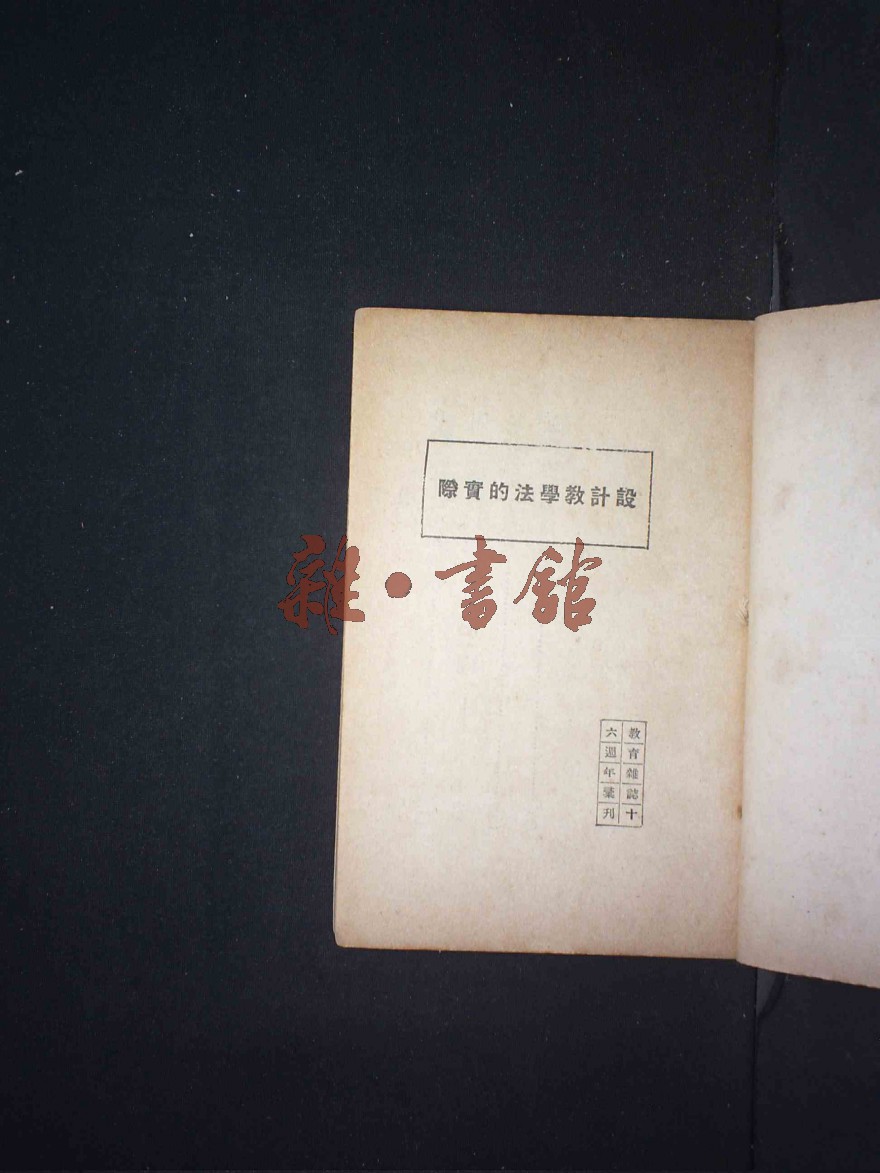 設計教學法的實際
雜·書館
教育雜誌十
六週年彙刊